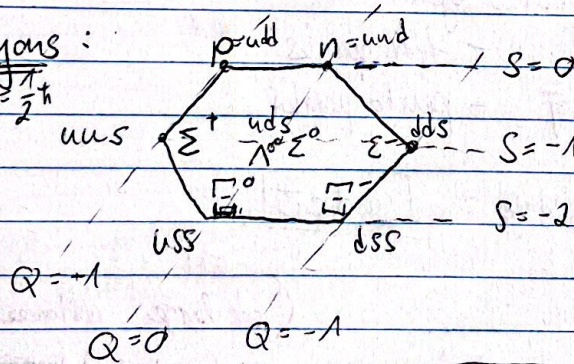 yons:
p=udd n=uud S=0
J=1/2 ħ
uus Σ⁺ uds Λ⁰ Σ⁰ Σ⁻ dds S=-1
Ξ⁰ Ξ⁻ S=-2
uss dss
Q=+1
Q=0 Q=-1